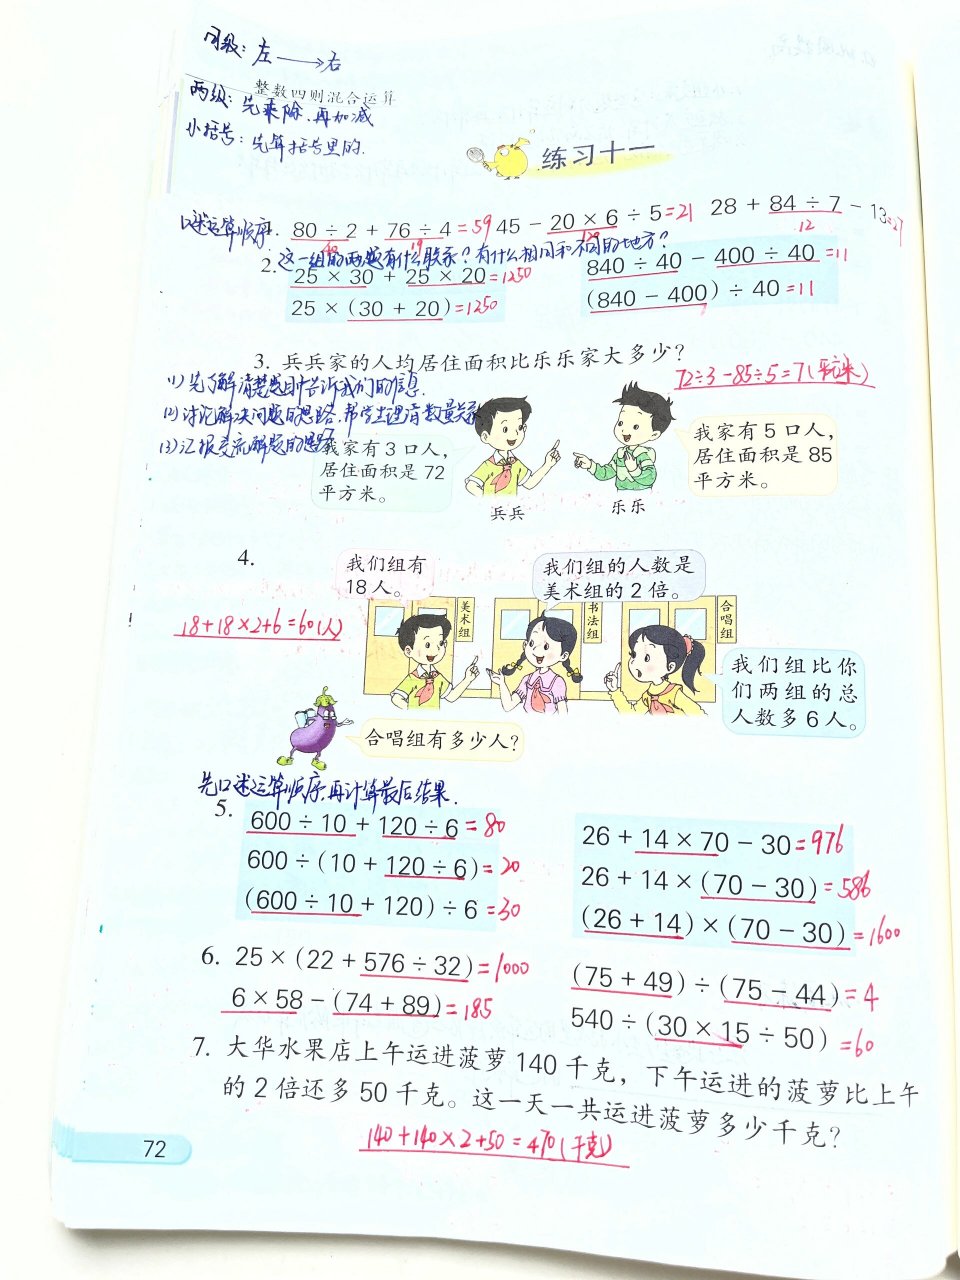 同级：左——>右
整数四则混合运算
两级：先乘除，再加减
小括号：先算括号里的．
练习十一
口述运算顺序
1. 80÷2+76÷4=59
40 19
45-20×6÷5=21
120
28+84÷7-13=27
12
这一组的两题有什么联系？有什么相同和不同的地方？
2. 25×30+25×20=1250
25×(30+20)=1250
840÷40-400÷40=11
(840-400)÷40=11
3. 兵兵家的人均居住面积比乐乐家大多少？
72÷3-85÷5=7(平方米)
(1)先了解清楚题目中告诉我们的信息．
(2)讨论解决问题的思路，帮学生理清数量关系
(3)汇报交流解题的思路
我家有3口人，
居住面积是72
平方米。
我家有5口人，
居住面积是85
平方米。
兵兵
乐乐
4.
我们组有
18人。
我们组的人数是
美术组的2倍。
18+18×2+6=60(人)
美术组
书法组
合唱组
我们组比你
们两组的总
人数多6人。
合唱组有多少人？
先口述运算顺序再计算最后结果．
5. 600÷10+120÷6=80
600÷(10+120÷6)=20
(600÷10+120)÷6=30
26+14×70-30=976
26+14×(70-30)=586
(26+14)×(70-30)=1600
6. 25×(22+576÷32)=1000
6×58-(74+89)=185
(75+49)÷(75-44)=4
540÷(30×15÷50)=60
7. 大华水果店上午运进菠萝140千克，下午运进的菠萝比上午
的2倍还多50千克。这一天一共运进菠萝多少千克？
140+140×2+50=470(千克)
72